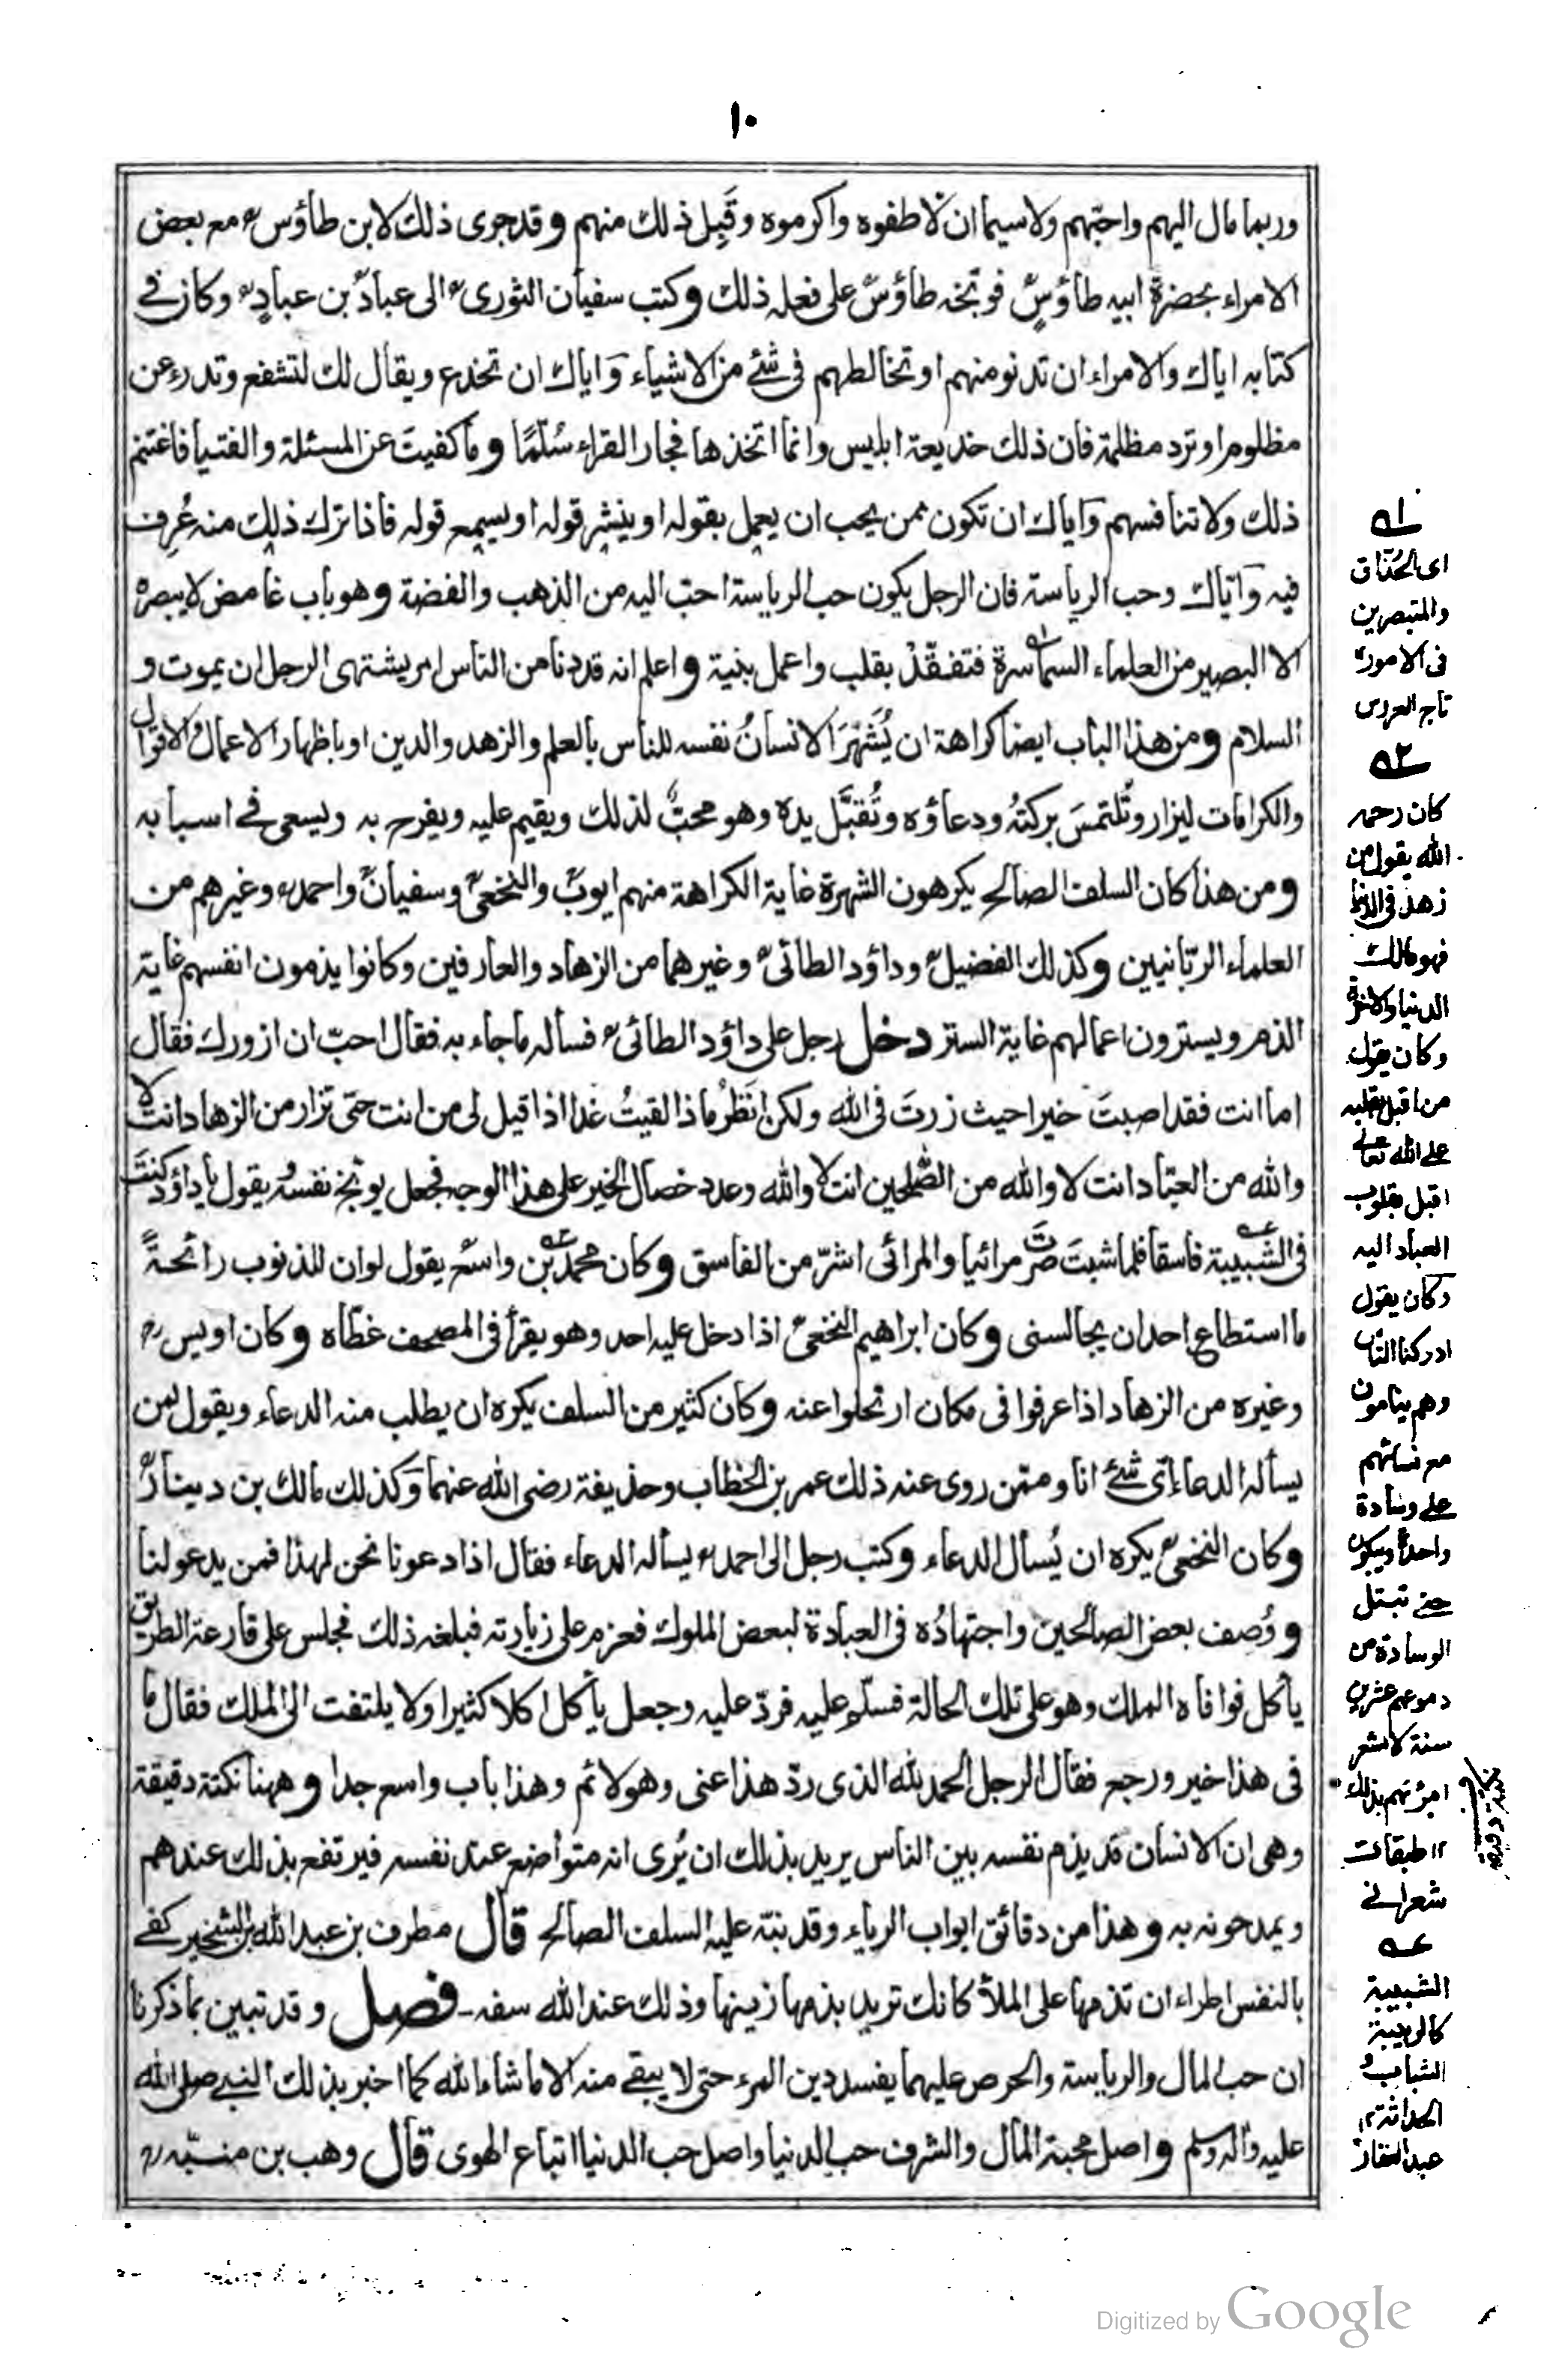 ١٠
وربما مال اليهم واحبّهم ولاسيما ان لاطفوه واكرموه وقَبِل ذلك منهم وقد جرى ذلك لابن طاؤس مع بعض
الامراء بحضرة ابيه طاؤس فوبّخه طاؤس على فعله ذلك وكتب سفيان الثورى الى عباد بن عباد وكان فى
كتابه اياك والامراء ان تدنو منهم او تخالطهم فى شئ من الاشياء واياك ان تخدع ويقال لك لتشفع وتدرء عن
مظلوم او ترد مظلمة فان ذلك خديعة ابليس وانما اتخذها فجار القراء سُلّمًا وما كفيتَ عن المسئلة والفتيا فاغتنم
ذلك ولا تنافسهم واياك ان تكون ممن يحب ان يعمل بقوله او ينشر قوله او يسمع قوله فاذا ترك ذلك منه عُرِف
فيه واياك وحب الرياسة فان الرجل يكون حب الرياسة احب اليه من الذهب والفضة وهو باب غامض لا يبصره
الا البصير من العلماء السماسرة فتفقّد بقلب واعمل بنية واعلم انه قد دنا من الناس امر يشتهى الرجل ان يموت و
السلام ومن هذا الباب ايضا كراهة ان يُشَهِّرَ الانسانُ نفسه للناس بالعلم والزهد والدين او باظهار الاعمال والاقوال
والكرامات ليزار وتُلتمسَ بركتُه ودعاؤه وتُقبَّل يده وهو محبٌّ لذلك ويقيم عليه ويفرح به ويسعى فى اسبابه
ومن هذا كان السلف الصالح يكرهون الشهرة غاية الكراهة منهم ايوب والنخعى وسفيان واحمد وغيرهم من
العلماء الربّانيين وكذلك الفضيل وداؤد الطائى وغيرهما من الزهاد والعارفين وكانوا يذمون انفسهم غاية
الذم ويسترون اعمالهم غاية الستر دخل رجل على داؤد الطائى فسأله ما جاء به فقال احبّ ان ازورك فقال
اما انت فقد اصبتَ خيرا حيث زرتَ فى الله ولكن اَنظُرُ ماذا لقيتُ غدا اذا قيل لى من انت حتى تزار من الزهاد انت لا
والله من العبّاد انت لا والله من الصّلحين انت لا والله وعدد خصال الخير على هذا الوجه فجعل يوبّخ نفسه يقول يا داؤد كنتَ
فى الشبيبة فاسقا فلما شبتَ صرتَ مرائيا والمرائى اشرّ من الفاسق وكان محمد بن واسع يقول لو ان للذنوب رائحةً
ما استطاع احد ان يجالسنى وكان ابراهيم النخعى اذا دخل عليه احد وهو يقرأ فى المصحف غطّاه وكان اويس
وغيره من الزهاد اذا عرفوا فى مكان ارتحلوا عنه وكان كثير من السلف يكره ان يطلب منه الدعاء ويقول لمن
يسأله الدعاء اىّ شئ انا وممّن روى عنه ذلك عمر بن الخطاب وحذيفة رضى الله عنهما وكذلك مالك بن دينار
وكان النخعى يكره ان يُسأل الدعاء وكتب رجل الى احمد يسأله الدعاء فقال اذا دعونا نحن لهذا فمن يدعو لنا
ووُصف بعض الصالحين واجتهادُه فى العبادة لبعض الملوك فعزم على زيارته فبلغه ذلك فجلس على قارعة الطريق
يأكل فوافاه الملك وهو على تلك الحالة فسلّم عليه فردّ عليه وجعل يأكل اكلا كثيرا ولا يلتفت الى الملك فقال ما
فى هذا خير ورجع فقال الرجل الحمد لله الذى ردّ هذا عنى وهو لائم وهذا باب واسع جدا وههنا نكتة دقيقة
وهى ان الانسان قد يذم نفسه بين الناس يريد بذلك ان يُرى انه متواضع عند نفسه فيرتفع بذلك عندهم
ويمدحونه به وهذا من دقائق ابواب الرياء وقد نبّه عليه السلف الصالح قال مطرف بن عبد الله بن الشخير كفى
بالنفس اطراء ان تذمها على الملأ كانك تريد بذمها زينها وذلك عند الله سفه ۔ فصل وقد تبين بما ذكرنا
ان حب المال والرياسة والحرص عليهما يفسد دين المرء حتى لا يبقى منه الا ما شاء الله كما اخبر بذلك النبى صلى الله
عليه واله وسلم واصل محبة المال والشرف حب الدنيا واصل حب الدنيا اتباع الهوى قال وهب بن منبّه
١ه
اى الحُذّاق
والمتبصرين
فى الامور
تاج العروس
٢ه
كان رحمه
الله يقول من
زهد فى الدنيا
فهو مالك
الدنيا والاخرة
وكان يقول
من اقبل بقلبه
على الله تعالى
اقبل بقلوب
العباد اليه
وكان يقول
ادركنا الناس
وهم ينامون
مع نسائهم
على وسادة
واحدة ويبكون
حتى تبتل
الوسادة من
دموعهم عشرين
سنة لا تشعر
امرأتهم بذلك
١٢ طبقات
شعرانى
الشبيبة
كالربيبة
الشباب و
الحداثة ١٢
عبد الغفار
نكتة دقيقة
Digitized by Google